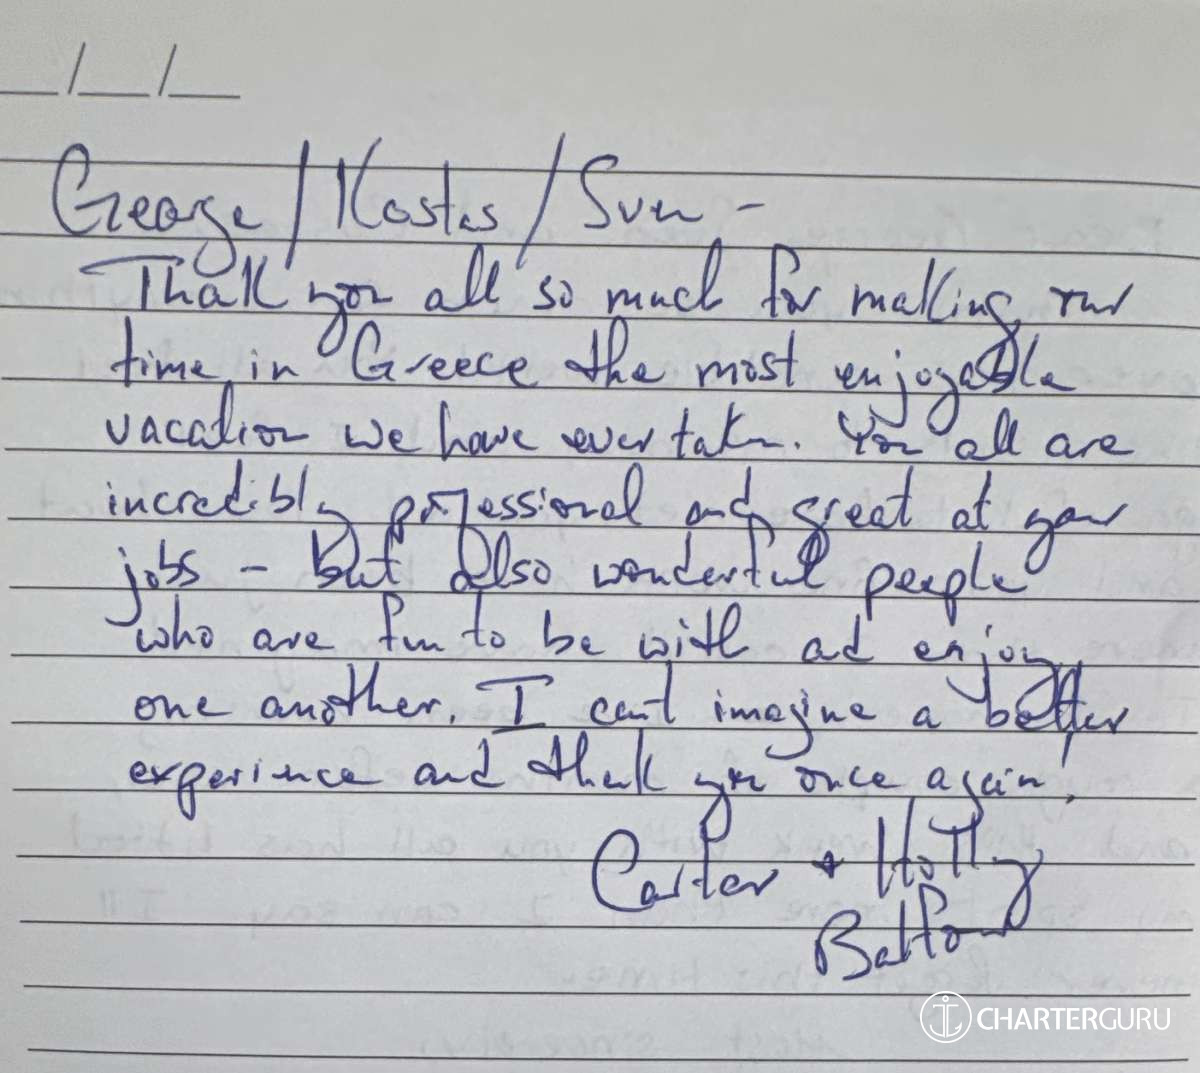 __/__/__
George/Kostas/Sven -
Thank you all so much for making our
time in Greece the most enjoyable
vacation we have ever taken. You all are
incredibly professional and great at your
jobs - but also wonderful people
who are fun to be with ad enjoy
one another. I can't imagine a better
experience and thank you once again!
Carter + Holly
Balfour
CHARTERGURU